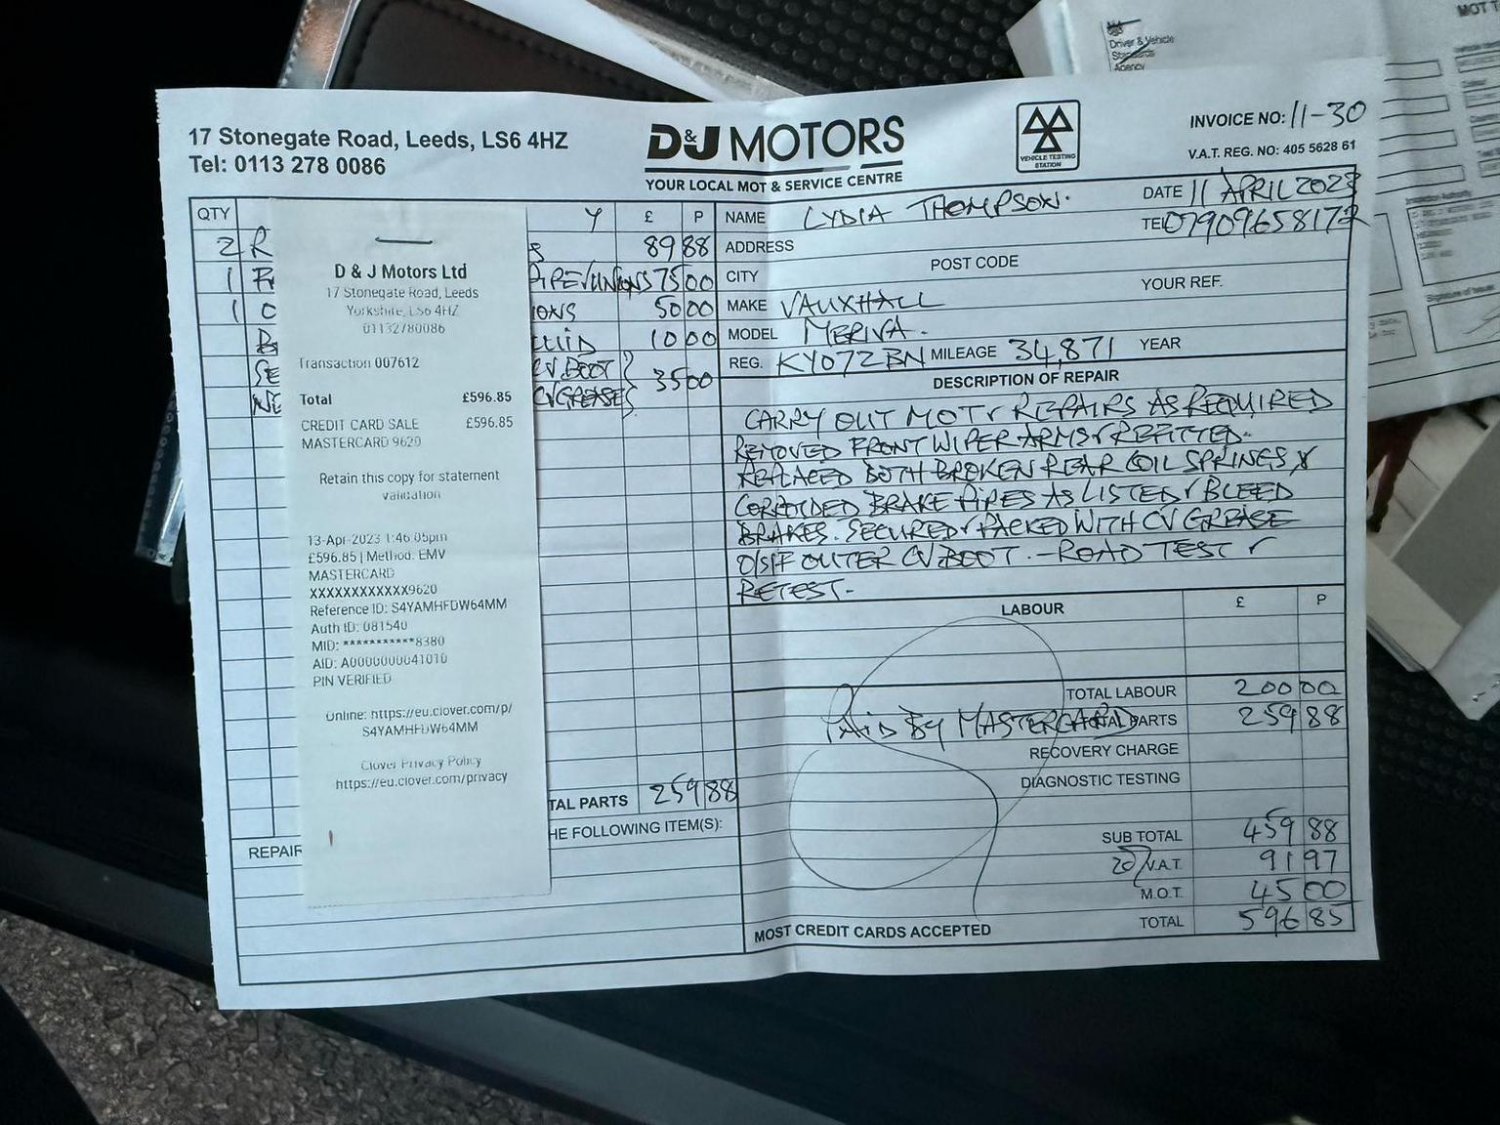 17 Stonegate Road, Leeds, LS6 4HZ
Tel: 0113 278 0086
D&J MOTORS
YOUR LOCAL MOT & SERVICE CENTRE
VEHICLE TESTING
STATION
INVOICE NO: 11-30
V.A.T. REG. NO: 405 5628 61
QTY Y £ P
2 R S 89 88
1 PIPE/UNIONS 75 00
1 C IONS 50 00
10 00
SE CV BOOT
CV GREASE 35 00
TAL PARTS 259 88
REPAIR HE FOLLOWING ITEM(S):
D & J Motors Ltd
17 Stonegate Road, Leeds
Yorkshire, LS6 4HZ
01132780086
Transaction 007612
Total £596.85
CREDIT CARD SALE £596.85
MASTERCARD 9620
Retain this copy for statement
validation
13-Apr-2023 1:46:05pm
£596.85 | Method: EMV
MASTERCARD
XXXXXXXXXXXX9620
Reference ID: S4YAMHFDW64MM
Auth ID: 081540
MID: ***********8380
AID: A0000000041010
PIN VERIFIED
Online: https://eu.clover.com/p/
S4YAMHFDW64MM
Clover Privacy Policy
https://eu.clover.com/privacy
NAME LYDIA THOMPSON. DATE 11 APRIL 2023
ADDRESS TEL 07909658172
CITY POST CODE
YOUR REF.
MAKE VAUXHALL
MODEL MERIVA.
REG. KY07ZBN MILEAGE 34,871 YEAR
DESCRIPTION OF REPAIR
CARRY OUT MOT & REPAIRS AS REQUIRED
REMOVED FRONT WIPER ARMS & REFITTED.
REPLACED BOTH BROKEN REAR COIL SPRINGS, &
CORRODED BRAKE PIPES AS LISTED & BLEED
BRAKES. SECURED & PACKED WITH CV GREASE
O/S/F OUTER CV BOOT. - ROAD TEST &
RETEST.
LABOUR £ P
TOTAL LABOUR 200 00
PAID BY MASTERCARD TOTAL PARTS 259 88
RECOVERY CHARGE
DIAGNOSTIC TESTING
SUB TOTAL 459 88
20% V.A.T. 91 97
M.O.T. 45 00
MOST CREDIT CARDS ACCEPTED TOTAL 596 85
Driver & Vehicle
Standards
Agency
MOT T